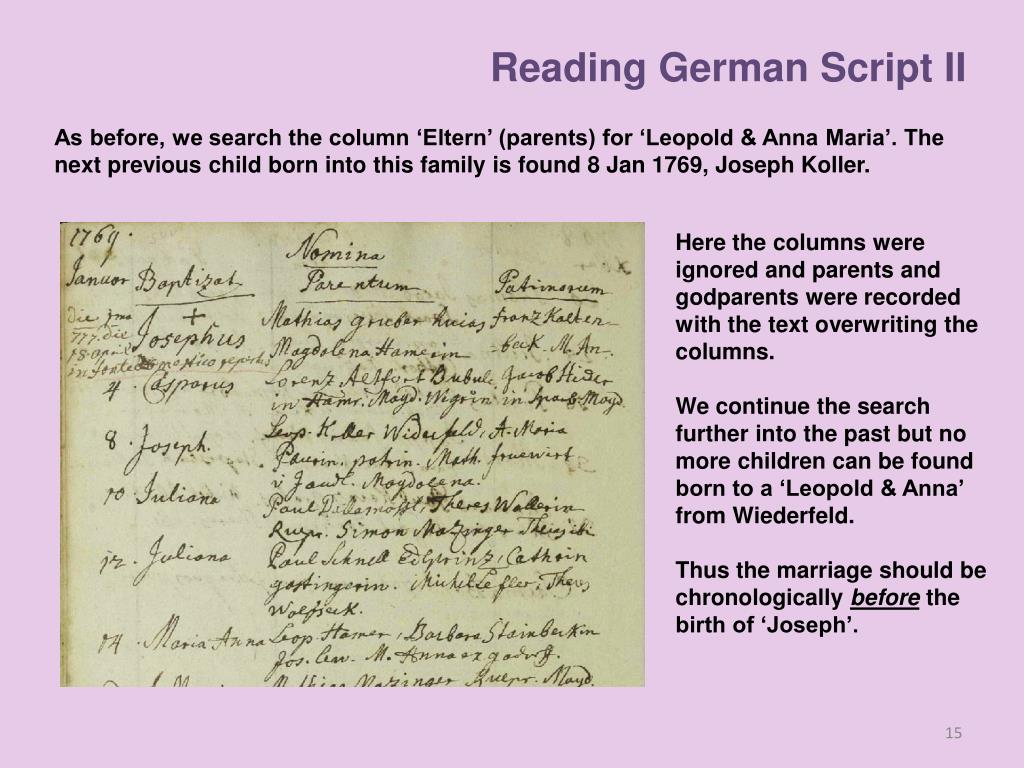 Reading German Script II
As before, we search the column ‘Eltern’ (parents) for ‘Leopold & Anna Maria’. The
next previous child born into this family is found 8 Jan 1769, Joseph Koller.
1769.
Nomina
Januor Baptizat Parentum Patrinorum
Josephus Mathias gruber huias franz Kalten-
Magdolena Hamerin -beck M. An.
4. Casparus Lorenz
in Hamr. Mayd. Nigrin in
8. Joseph. Leop. Koller Widerfeld, A. Maria
Paurin. patrin. Math.
Magdolena.
10. Juliana Paul Theres Wallerin
Simon Mazinger
12. Juliana Paul Schnell Cathrin
gastingerin. Michl Lefler, Theres
14. Maria Anna Leop Hamer, Barbara Stainbeckin
Jos. M. Anna
Mathias Mazinger Mayd.
Here the columns were
ignored and parents and
godparents were recorded
with the text overwriting the
columns.
We continue the search
further into the past but no
more children can be found
born to a ‘Leopold & Anna’
from Wiederfeld.
Thus the marriage should be
chronologically before the
birth of ‘Joseph’.
15